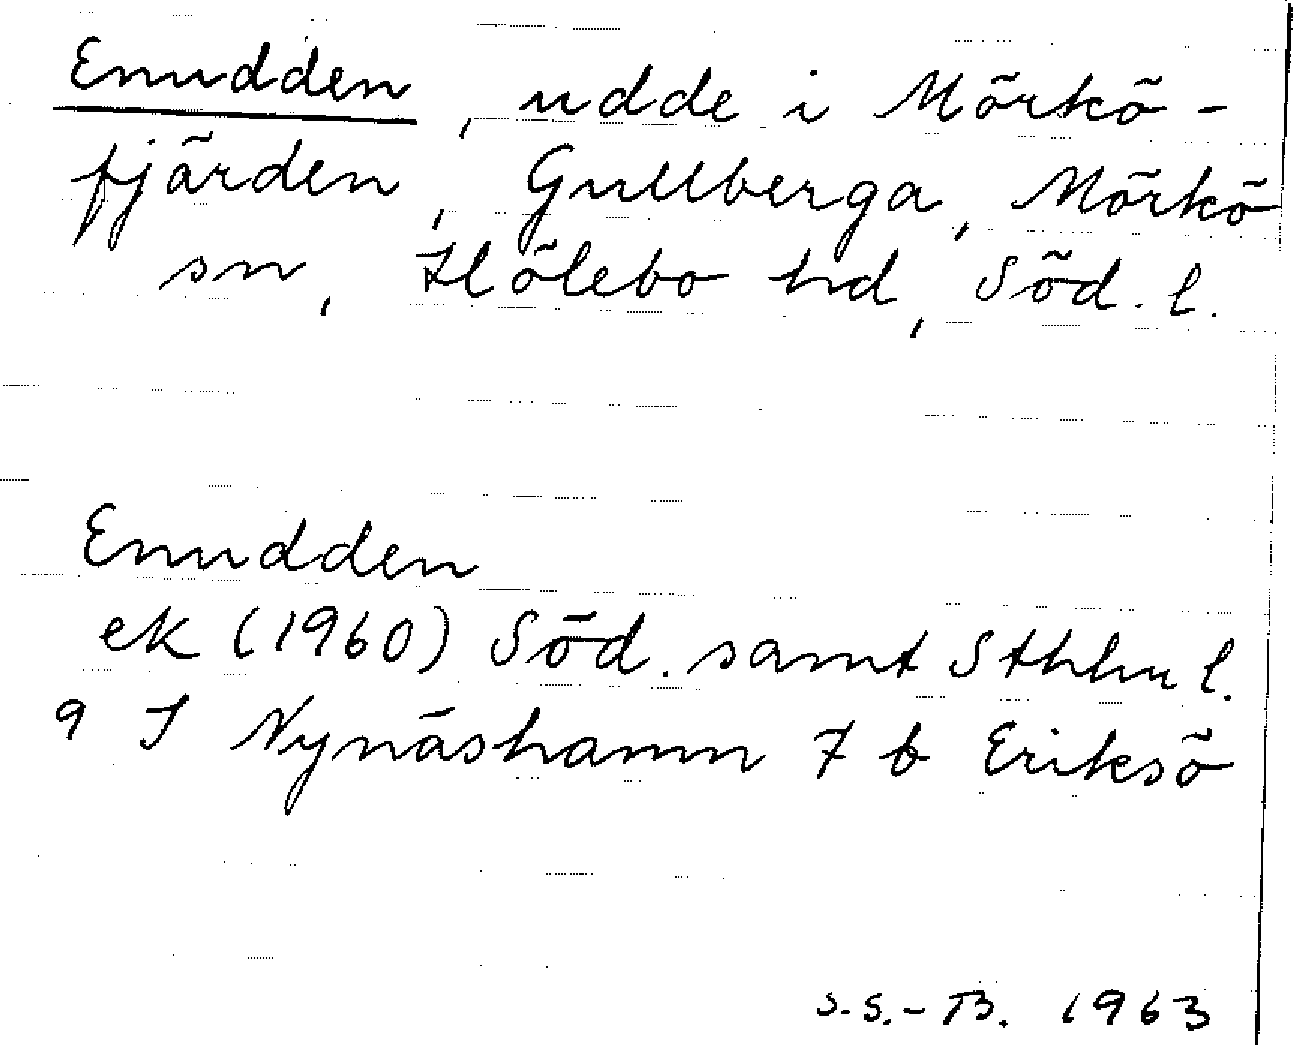 Enudden, udde i Mörkö-
fjärden, Gullberga, Mörkö
sn, Hölebo hd, Söd. l.
Enudden
ek (1960) Söd. samt Sthlm l.
9 I Nynäshamn 7 b Eriksö
S.S.-B. 1963